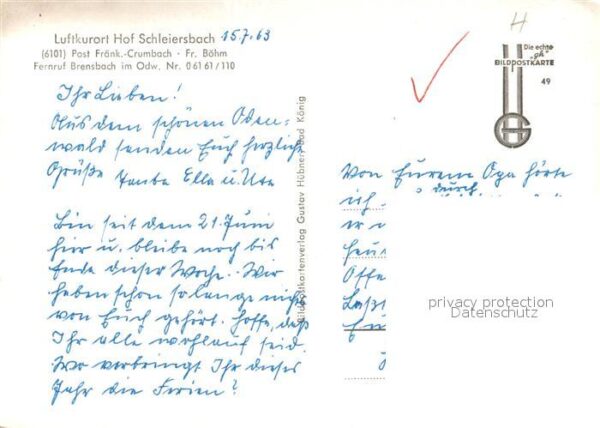 Luftkurort Hof Schleiersbach 15.7.63
(6101) Post Fränk.-Crumbach · Fr. Böhm
Fernruf Brensbach im Odw. Nr. 0 61 61 / 110
Ihr Lieben!
Aus dem schönen Oden-
wald senden Euch herzliche
Grüße Tante Ella u. Ute
Bin seit dem 21. Juni
hier u. bleibe noch bis
Ende dieser Woche. Wir
haben schon so lange nichts
von Euch gehört. Hoffe, daß
Ihr alle wohlauf seid.
Wo verbringt Ihr dieses
Jahr die Ferien?
Bildpostkartenverlag Gustav Hübner, Bad König
H
Die echte
"gh"
BILDPOSTKARTE
49
Von Eurem Opa hörte
ich durch
er
heu
Offe
Laßt
privacy protection
Datenschutz